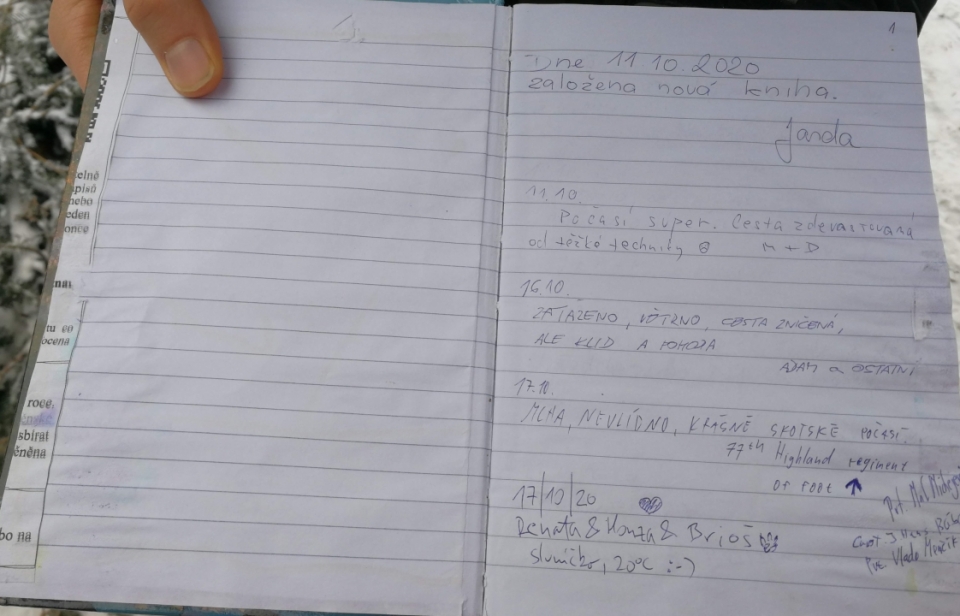 elně
apisů
nebo
eden
once
tu co
ocena
roce,
sbírat
ěněna
bo na
1
Dne 11 10. 2020
založena nová kniha.
Janda
11.10.
Počasí super. Cesta zdevastovaná
od těžké techniky ☹ M + D
16.10.
ZATAŽENO, VĚTRNO, CESTA ZNIČENÁ,
ALE KLID A POHODA
ADAM a OSTATNÍ
17.10.
MLHA, NEVLÍDNO, KRÁSNĚ SKOTSKÉ POČASÍ.
77th Highland regiment
OF FOOT ↑
17/10/20
Renata & Honza & Brioš
sluníčko, 20°C :-)